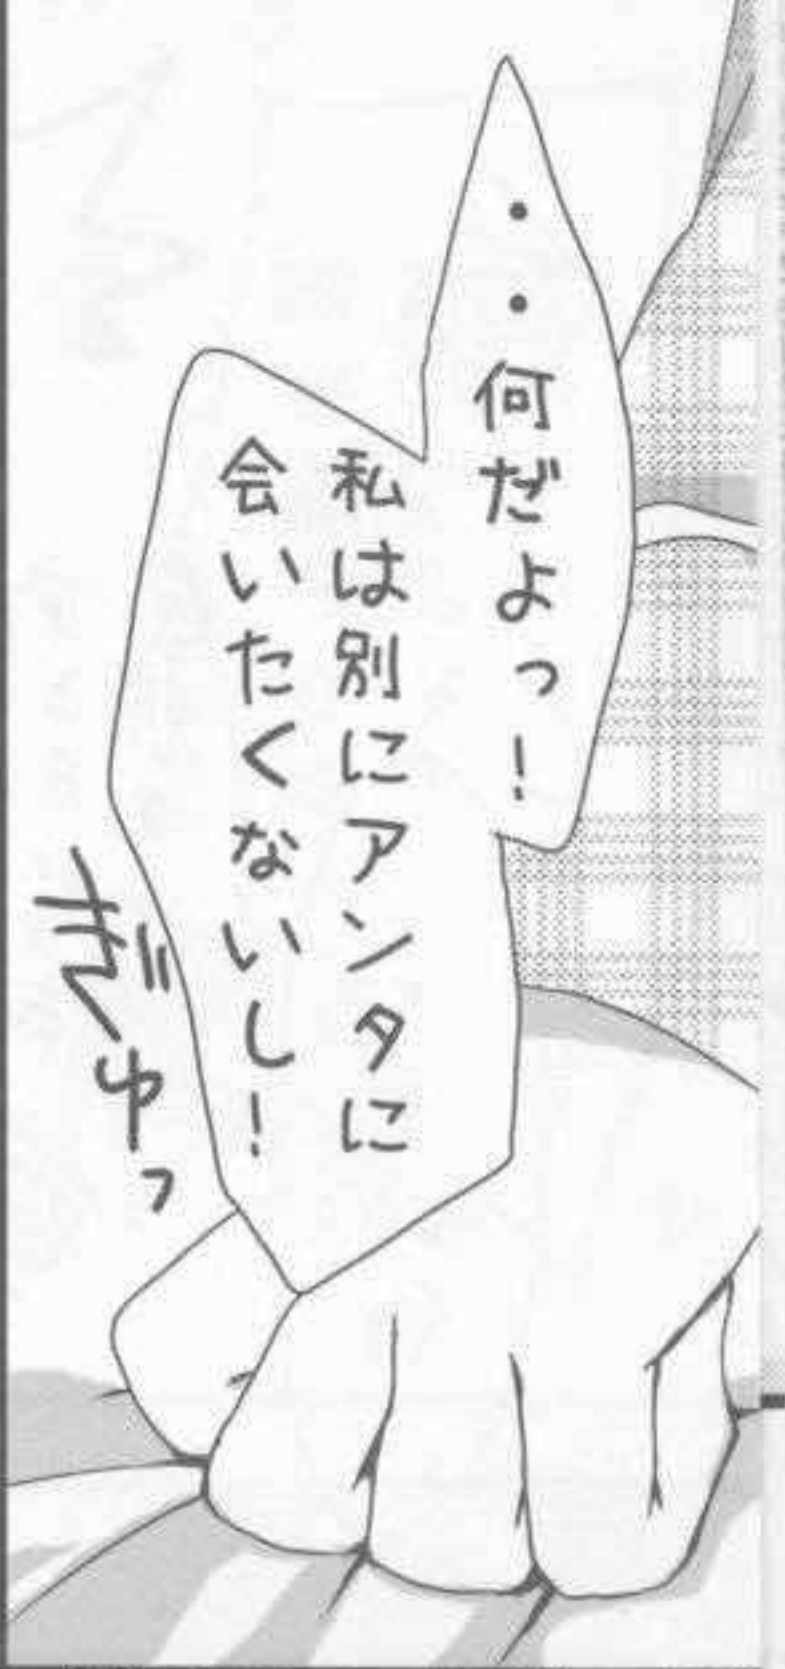 ・・何だよっ！
私は別にアンタに
会いたくないし！
ぎゅっ